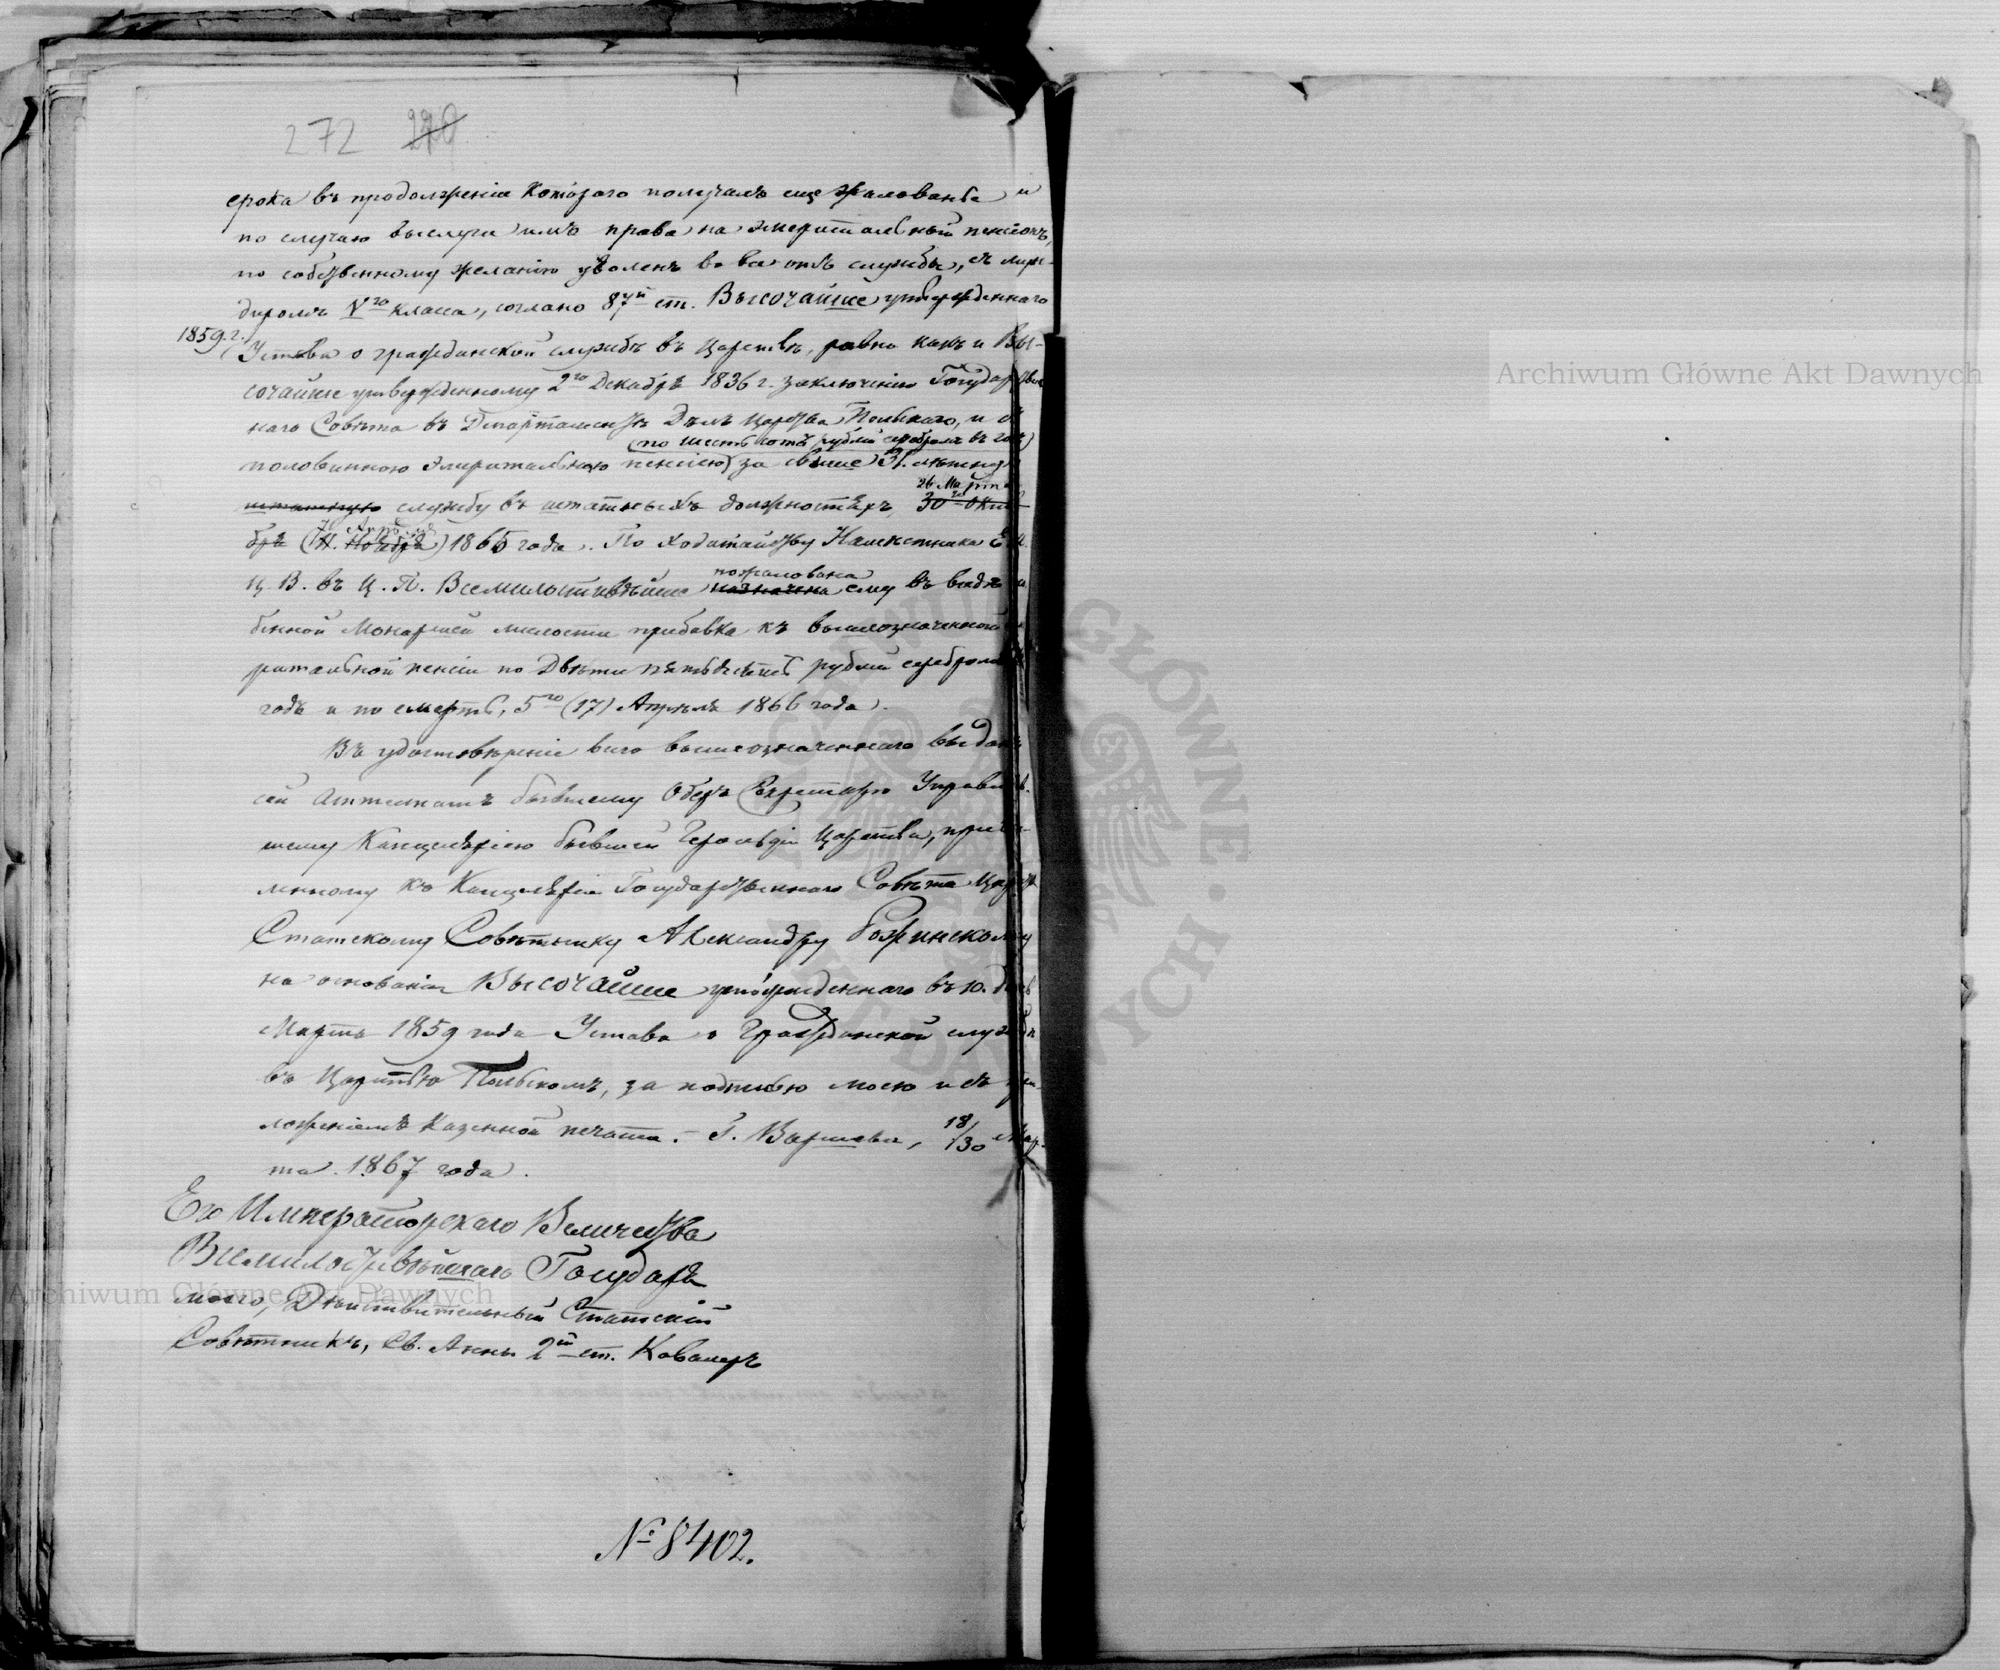 272 220
срока въ продолженіи котораго получалъ еще жалованье и
по случаю выслуги имъ права на эмеритальный пенсіонъ,
по собственному желанію уволенъ вовсе отъ службы, съ мун-
диромъ V го класса, согласно 87 й ст. Высочайше утвержденнаго
1859 г.
Устава о гражданской службѣ въ Царствѣ, равно какъ и Вы-
сочайше утвержденному 2 го Декабря 1836 г. заключенію Государствен
наго Совѣта въ Департаментѣ Дѣлъ Царства Польскаго, и съ
(по шесть сотъ рублей серебромъ въ годъ)
половинною эмеритальною пенсіею за свыше
26 Марта
штатную службу въ штатныхъ должностяхъ, 30 го Октя-
Апрѣля
бря (11 Ноября) 1865 года. По ходатайству Намѣстника Е. И.
пожалована
Ц. В. въ Ц. П. Всемилостивѣйше назначена ему въ видѣ
бенной Монаршей милости прибавка къ вышеозначенной
ритальной пенсіи по двѣсти пятьдесятъ рублей серебромъ въ
годъ и по смерть, 5 го (17) Апрѣля 1866 года.
Въ удостовѣреніе чего вышеозначеннаго выданъ
сей Аттестатъ бывшему Оберъ Секретарю Управляв.
шему Канцеляріею бывшей Герольдіи Царства, причи-
сленному къ Канцеляріи Государственнаго Совѣта Царства
Статскому Совѣтнику Александру Рожинскому
на основаніи Высочайше утвержденнаго въ 10. день
Марта 1859 года Устава о Гражданской службѣ
въ Царствѣ Польскомъ, за подписью моею и съ при-
ложеніемъ казенной печати. – Г. Варшава, 18/30 Мар-
та 1867 года.
Его Императорскаго Величества
Всемилостивѣйшаго Государя
моего, Дѣйствительный Статскій
Совѣтникъ, Св. Анны 2 й ст. Кавалеръ
№ 8402.
Archiwum Główne Akt Dawnych
Archiwum Główne Akt Dawnych